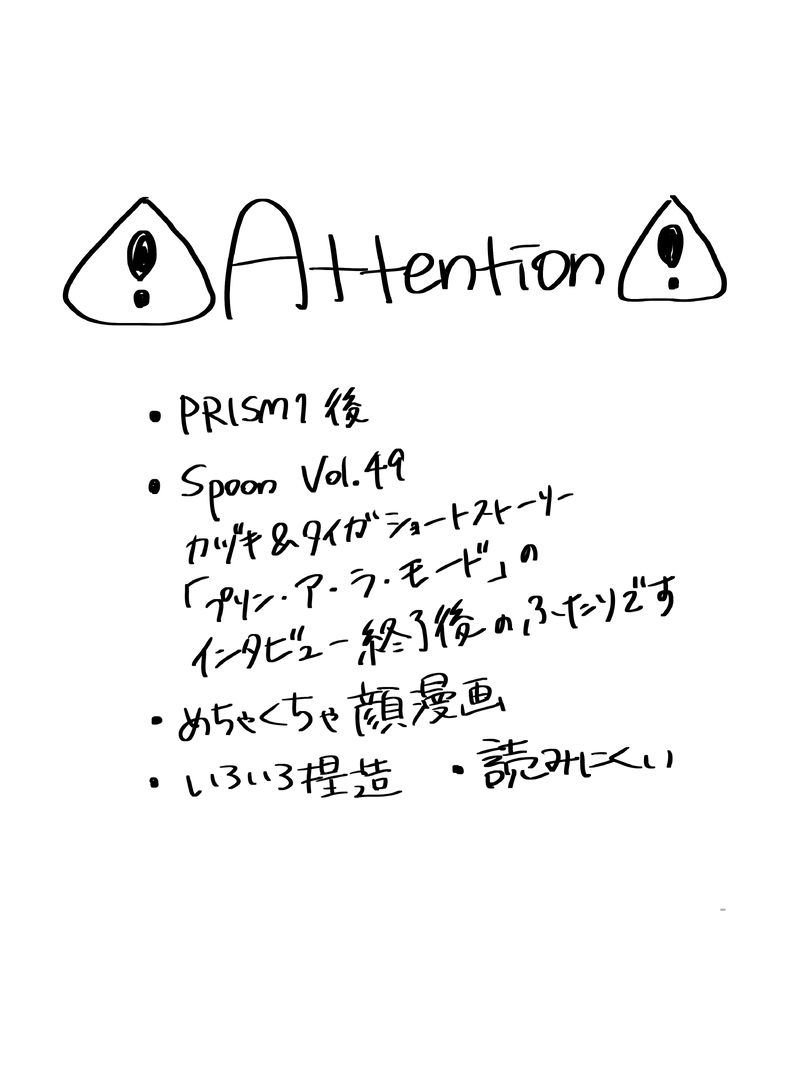 Attention
・PRISM1後
・Spoon Vol.49
カヅキ&タイガショートストーリー
「プリン・ア・ラ・モード」の
インタビュー終了後のふたりです
・めちゃくちゃ顔漫画
・いろいろ捏造 ・読みにくい